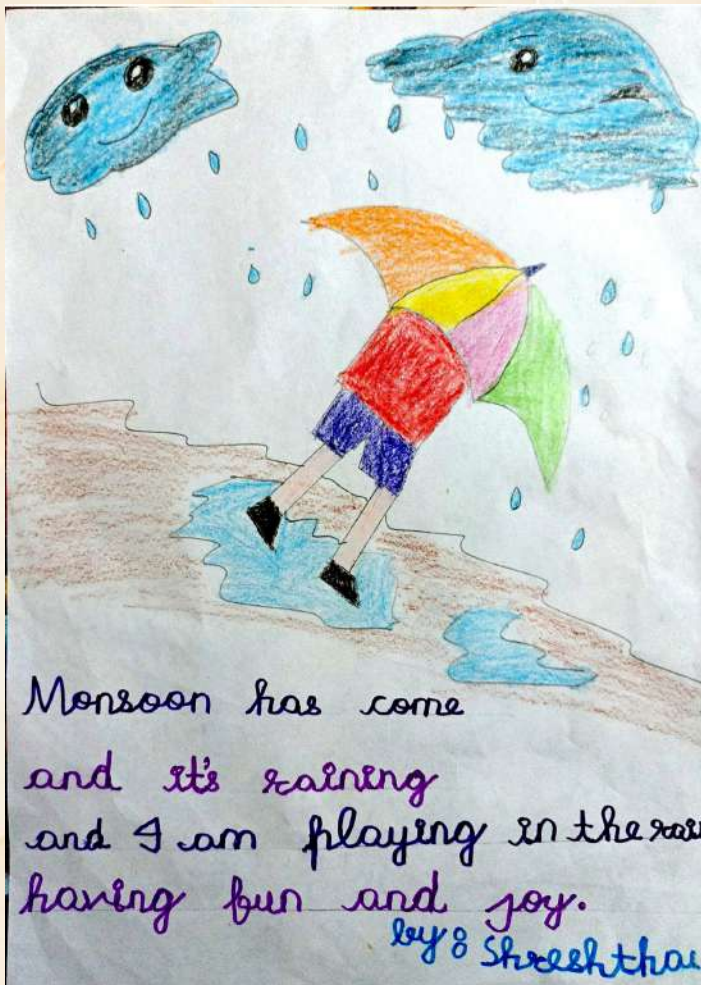 Monsoon has come
and it's raining
and I am playing in the rain
having fun and joy.
by: Shreshtha